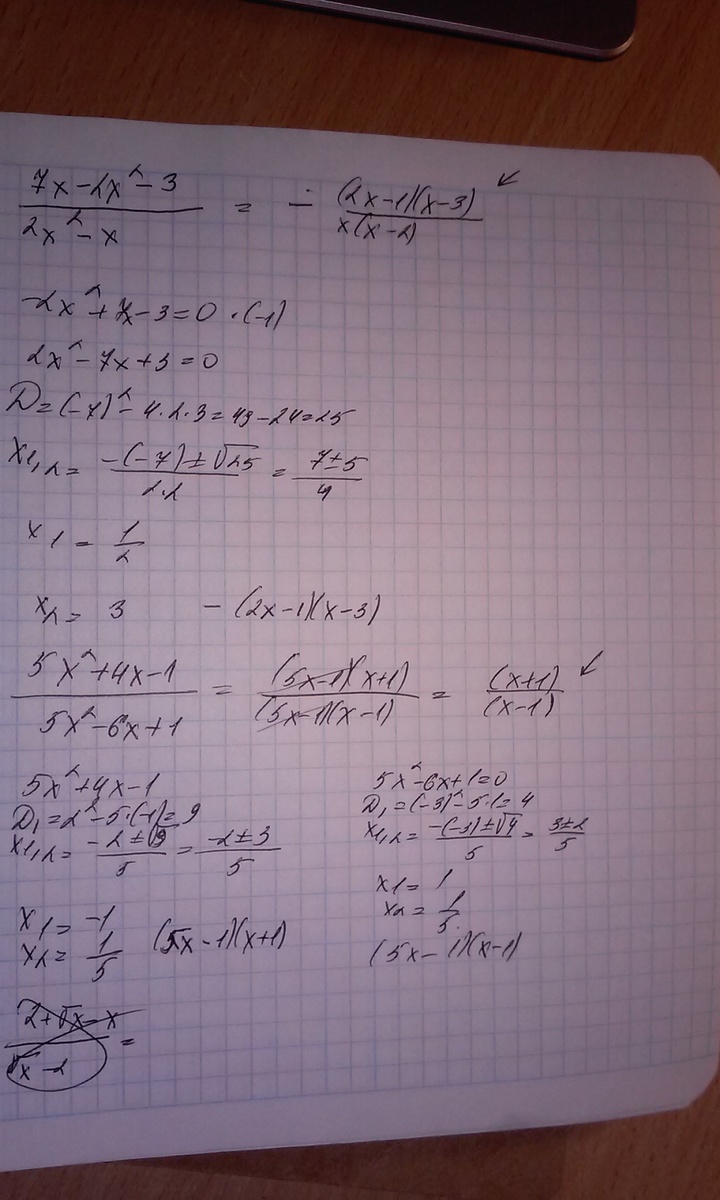 (7x-2x²-3)/(2x²-x) = - ((2x-1)(x-3))/(x(x-2)) ↙
-2x²+7x-3=0 ·(-1)
2x²-7x+3=0
D=(-7)²-4·2·3=49-24=25
x1,2= (-(-7)±√25)/(2·2) = (7±5)/4
x1 = 1/2
x2 = 3 -(2x-1)(x-3)
(5x²+4x-1)/(5x²-6x+1) = ((5x-1)(x+1))/((5x-1)(x-1)) = (x+1)/(x-1) ↙
5x²+4x-1
D1=2²-5·(-1)=9
x1,2= (-2±√9)/5 = (-2±3)/5
x1= -1
x2= 1/5 (5x-1)(x+1)
5x²-6x+1=0
D1=(-3)²-5·1=4
x1,2= (-(-3)±√4)/5 = (3±2)/5
x1= 1
x2= 1/5
(5x-1)(x-1)
(2+√x-x)/(x-2) =